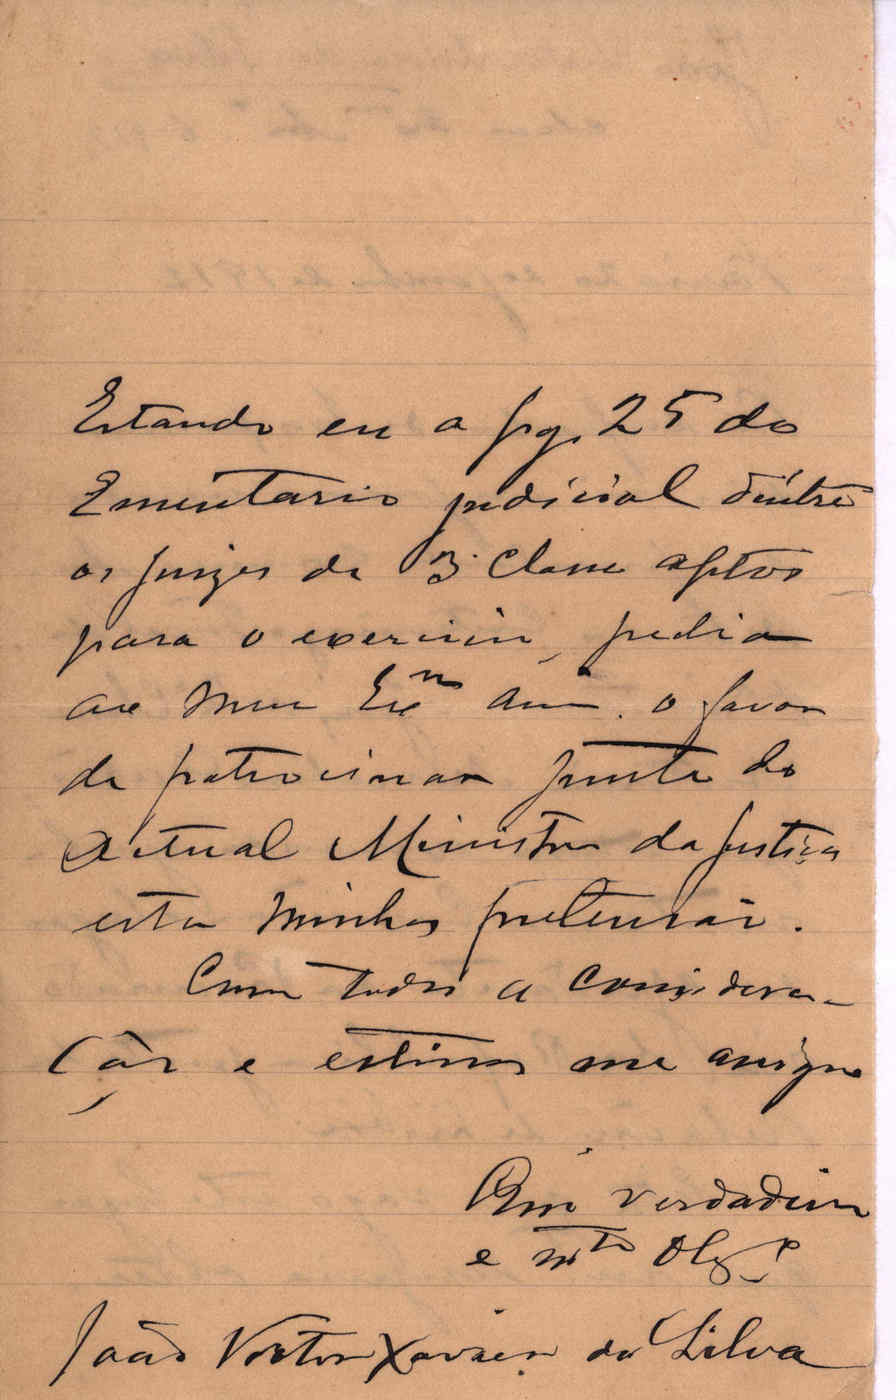 Estando eu a pag. 25 do
Ementario judicial dentre
os juizes de 3ª classe aptos
para o exercicio, pedia
ao meu Exmo Am. o favor
de patrocinar junto do
Actual Ministro da Justiça
esta minha pretensão.
Com toda a considera-
ção e estima me assigno
Amo verdadeiro
e mto Obgo
João Victor Xavier da Silva